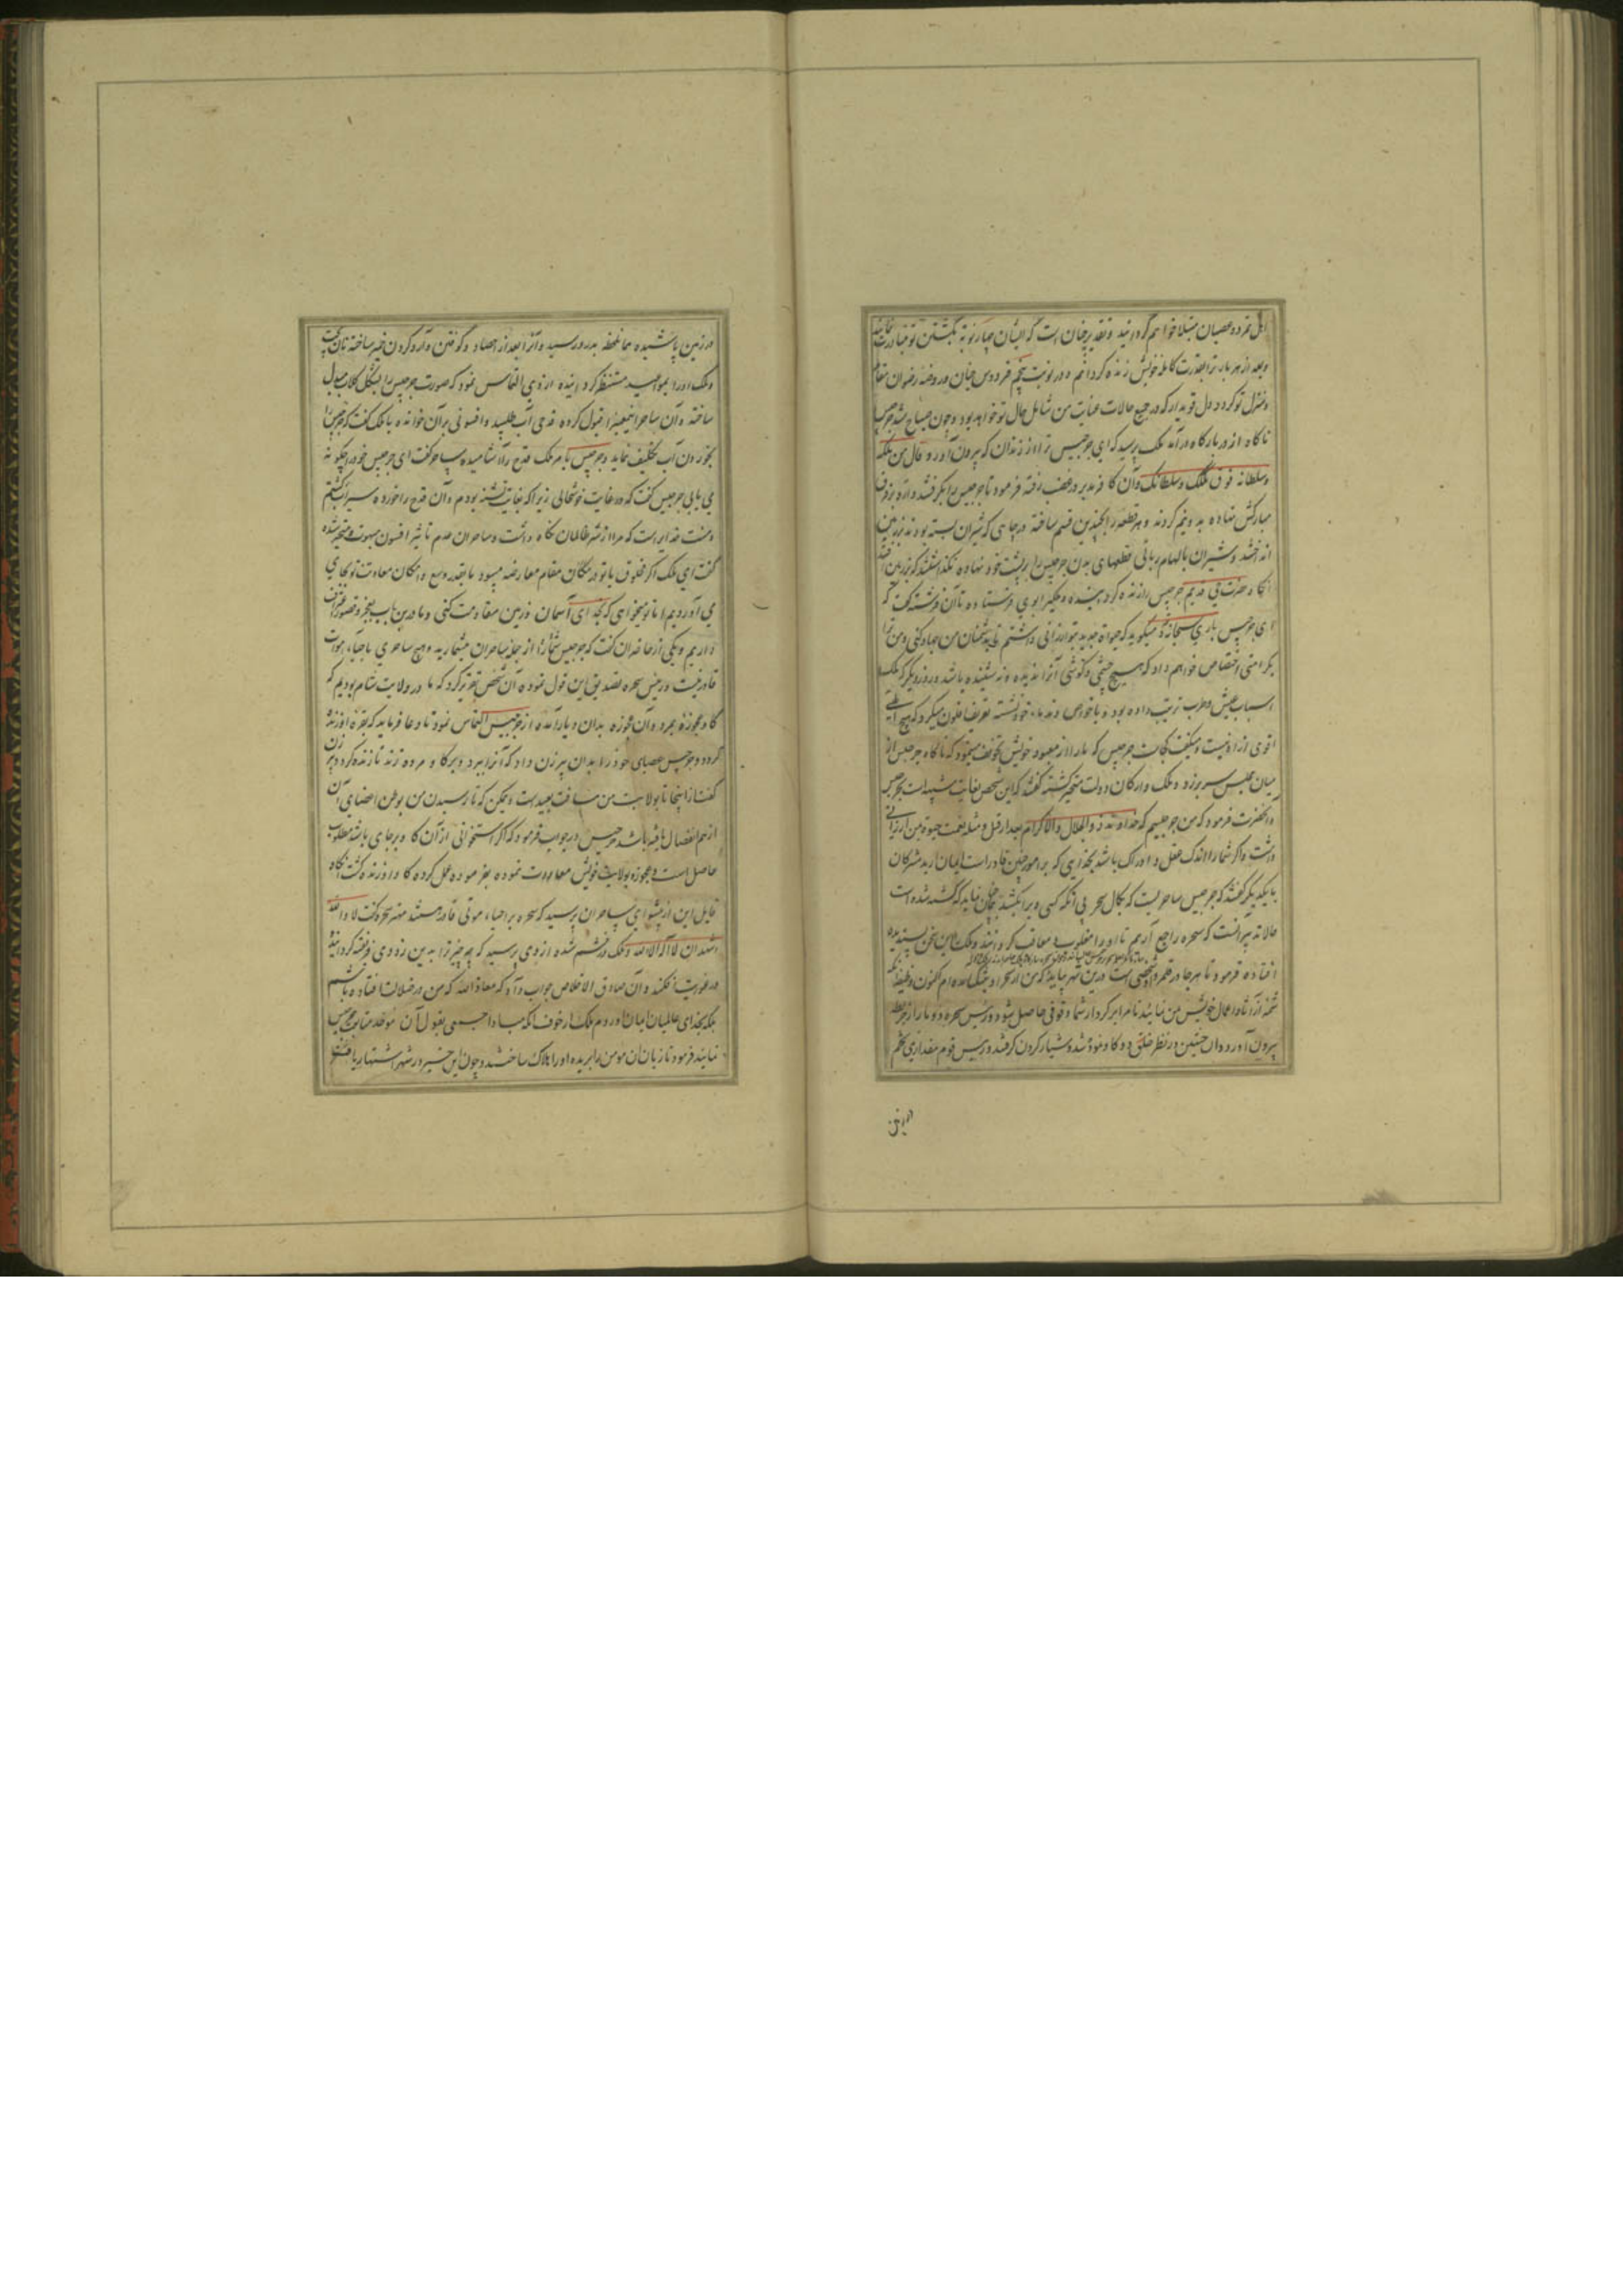 اهل تمرد و عصیان مبتلا خواهم گردانید و تقدیر چنان است که ایشان چهار نوبه بکشتن تو مبادرت نمایند
و بعد از هر بار ترا بقدرت کامله خویش زنده گردانم و در نوبت پنجم فردوس جنان و روضه رضوان مقام
و منزل تو گردد دل قوی دار که در جمیع حالات عنایت من شامل حال تو خواهد بود و چون صباح شد جرجیس
ناگاه از در بارگاه درآمد ملک پرسید که ای جرجیس ترا از زندان که بیرون آورد قال من ملکه
و سلطانه فوق ملکک و سلطانک و آن کافر در غضب رفته فرمود تا جرجیس را بگرفتند و اره بر فرق
مبارکش نهاده بدو نیم کردند و هر قطعه را بچندین قسم ساخته در چاهی که شیران بسته بودند
انداختند و شیران بالهام ربانی قطعهای بدن جرجیس را بر پشت خود نهاده نگذاشتند که بر زمین افتد
آنگاه حضرت حی قدیم جرجیس را زنده گردانیده دیگر بار وی فرستاده تا آن فرشته گفت که
ای جرجیس باری سبحانه میگوید که حیوة جدید بتو ارزانی داشتم تا با دشمنان من جهاد کنی و من ترا
بکرامتی اختصاص خواهم داد که هیچ چشمی و گوشی آنرا ندیده و نشنیده باشد و روز دیگر که ملک
اسباب عیش و طرب ترتیب داده بود و با خواص و ندماء خود نشسته تعریف افلون میکرد که هیچ
اقوی از او نیست و میگفت کجاست جرجیس که ما را از معبود خویش تخویف مینمود که ناگاه جرجیس از
میان مجلس سر بر زد و ملک و ارکان دولت متحیر گشته گفتند که این شخص بغایت شبیه است بجرجیس
و آنحضرت فرمود که من جرجیسم که خداوند ذو الجلال و الاکرام بعد از قتل و مثله نعمت حیوة بمن ارزانی
داشت و اگر شما را اندک عقل و ادراک باشد بخدایی که بر امور چنین قادر است ایمان آرید مشرکان
با یکدیگر گفتند که جرجیس ساحریست که بکمال سحر بی آنکه کسی ویرا بکشد چنان نماید که کشته شده است
حالا تدبیر آنست که سحره را جمع آریم تا او را مغلوب و معاقب گردانند و ملک را این سخن پسندیده
افتاده فرمود تا هر جا در قلمرو او شخصی است درین شهر بیاید که من از سحر او بتنگ آمده ام اکنون وظیفه آنکه
شمه از نوادر اعمال خویش بمن نمایید تا مرا بر کردار شما وقوفی حاصل شود و رئیس سحره دو مار از خریطه
بیرون آورد و آن حنین در نظر خلق دو گاو نمودند و شیار کردن گرفتند و رئیس قوم مقداری تخم
در زمین
در زمین پاشیده همان لحظه بدرو رسید و آنرا بعد از حصاد و کوفتن و آرد کردن خمیر ساخته نان پخت
و ملک او را بمواعید مستظهر گردانیده از وی التماس نمود که صورت جرجیس را بشکل کلاب مبدل
ساخته و آن ساحر اینمعنی را قبول کرده قدحی آب طلبید و افسونی بر آن خوانده با ملک گفت که جرجیس را
بخوردن آب تکلیف نماید و جرجیس بامر ملک قدح را آشامیده ساحر گفت ای جرجیس خود را چگونه
می یابی جرجیس گفت که در غایت خوشحالی زیرا که بغایت تشنه بودم و آن قدح را خورده سیراب گشتم
و منت خدایراست که مرا از شر ظالمان نگاه داشت و ساحران عدم تاثیر افسون مبهوت و متحیر شده
گفت ای ملک اگر مخلوقی با تو در مکان مقام معارضه میبود ما بقدر وسع و امکان معاونت تو بجای
می آوردیم اما تو میخواهی که بخدای آسمان و زمین مقاومت کنی و ما درین باب بعجز و قصور اعتراف
داریم و یکی از حاضران گفت که جرجیس را از جمله ساحران میشمارید و هیچ ساحری باحیاء اموات
قادر نیست و رئیس سحره تصدیق این قول نموده آن شخص تقریر کرد که ما در ولایت شام بودیم که
گاو عجوزه بمرد و آن عجوزه بدان دیار آمده از جرجیس التماس نمود تا دعا فرماید که بقره او زنده
گردد و جرجیس عصای خود را بدان پیر زن داد که آنرا ببرد و بر گاو مرده زند تا زنده گردد پیر زن
گفت از اینجا تا بولایت من مسافت بعید است و ممکن که تا رسیدن من بوطن اعضای آن
از هم انفصال یافته باشد جرجیس در جواب فرمود که اگر استخوانی از آن گاو بر جای باشد مطلوب
حاصل است و عجوزه بولایت خویش معاودت نموده بفرموده عمل کرده گاو او زنده گشت آنگاه
قایل این از پیشوای ساحران پرسید که سحره بر احیاء موتی قادر هستند مهتر سحره گفت لا والله
اشهد ان لا اله الا الله و ملک در خشم شده از وی پرسید که چه چیز ترا بدین زودی فریفته گردانید
در غوایت افکنده و آن صادق الاخلاص جواب داد که معاذ الله که من در ضلالت افتاده باشم
بلکه بخدای عالمیان ایمان آوردم ملک از خوف آنکه مبادا جمعی بقول آن موحد متابعت جرجیس
نمایند فرمود تا زبان آن مومن را بریده او را هلاک ساختند و چون این خبر در شهر اشتهار یافت